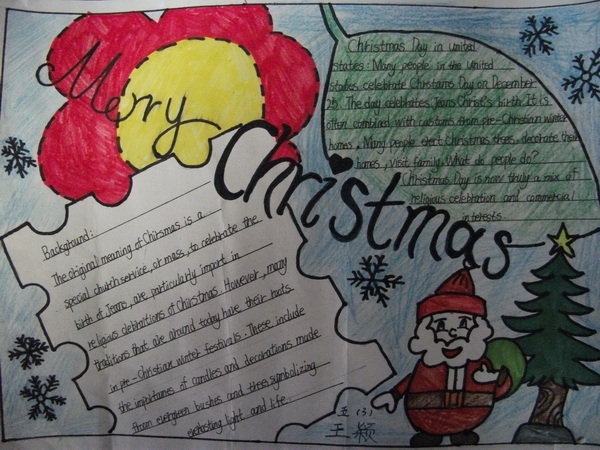 Merry
Christmas
Christmas Day in United
States: Many people in the United
States celebrate Christams Day on December
25. The day celebrates Jeans Christ's birth. It is
often combined with customs from pre-Christian winter
homes. Many people erect Christmas trees, decorate their
homes, visit family. What do people do?
Christmas Day is now truly a mix of
religious celebration and commercial
interests.
Background:
The original meaning of Chirsmas is a
special church service, or mass, to celebrate the
birth of Jeans, are particularly import in
religious celebrations of Chirstmas. However, many
traditions that are around today have their roots
in pre-Christian winter festivals. These include
the importanes of candles and decorations made
from evergreen bushes and trees, symbolizing
everlasting light and life.
五(3)
王颖